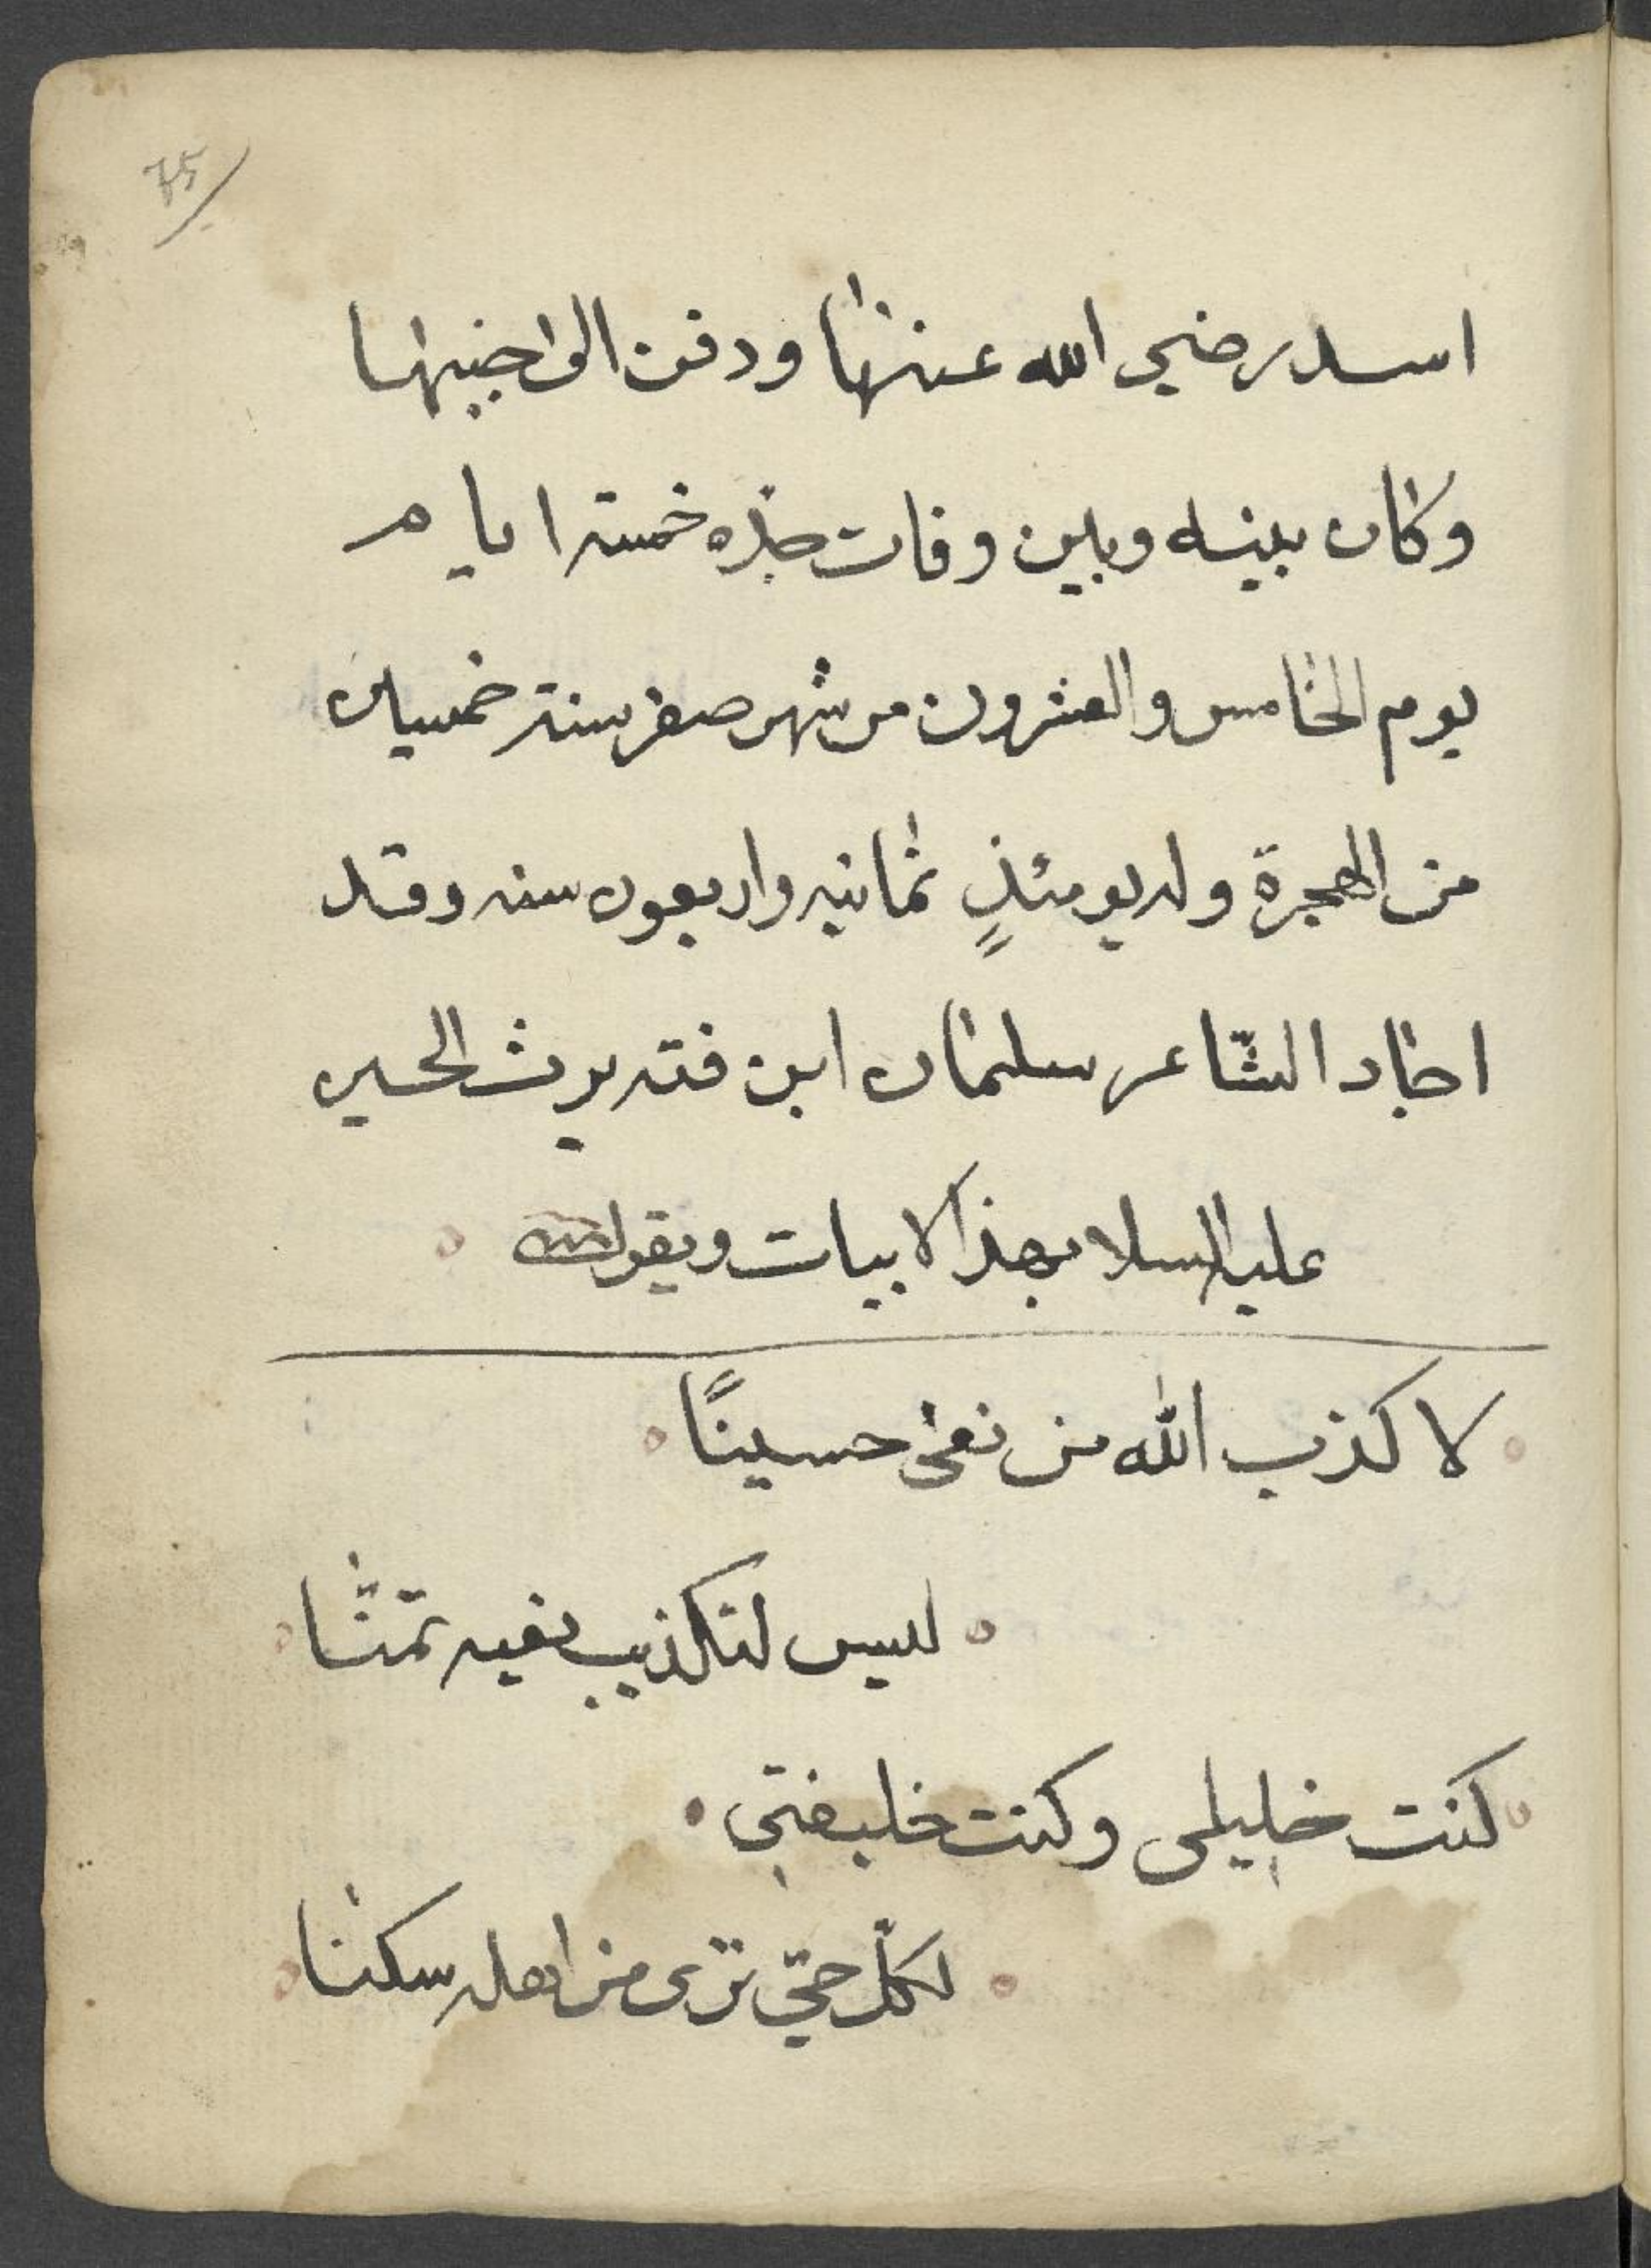 75
اسد رضي الله عنها ودفن الى جنبها
وكان بينه وبين وفات جده خمسة ايام
يوم الخامس والعشرون من شهر صفر سنة خمسين
من الهجرة وله يومئذٍ ثمانيه واربعون سنه وقد
اجاد الشاعر سلمان ابن فته يرث الحسن
عليه السلام بهذا الابيات ويقول
لا كذب الله من نعى حسينًا
ليس لتكذيب نعيه ثمنا
كنت خليلي وكنت خليفتي
لكلّ حيّ ترى من اهله سكنا